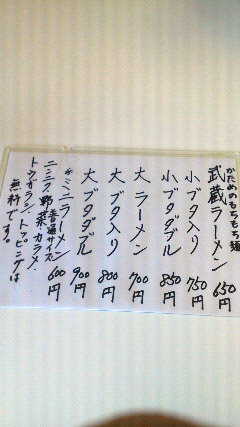 かためのもちもち麺
武蔵ラーメン 650円
小ブタ入り 750円
小ブタダブル 850円
大ラーメン 700円
大ブタ入り 800円
大ブタダブル 900円
*ミニラーメン 普通サイズ 600円
ニンニク、野菜、カラメ、
トウガラシ、トッピングは
無料です。